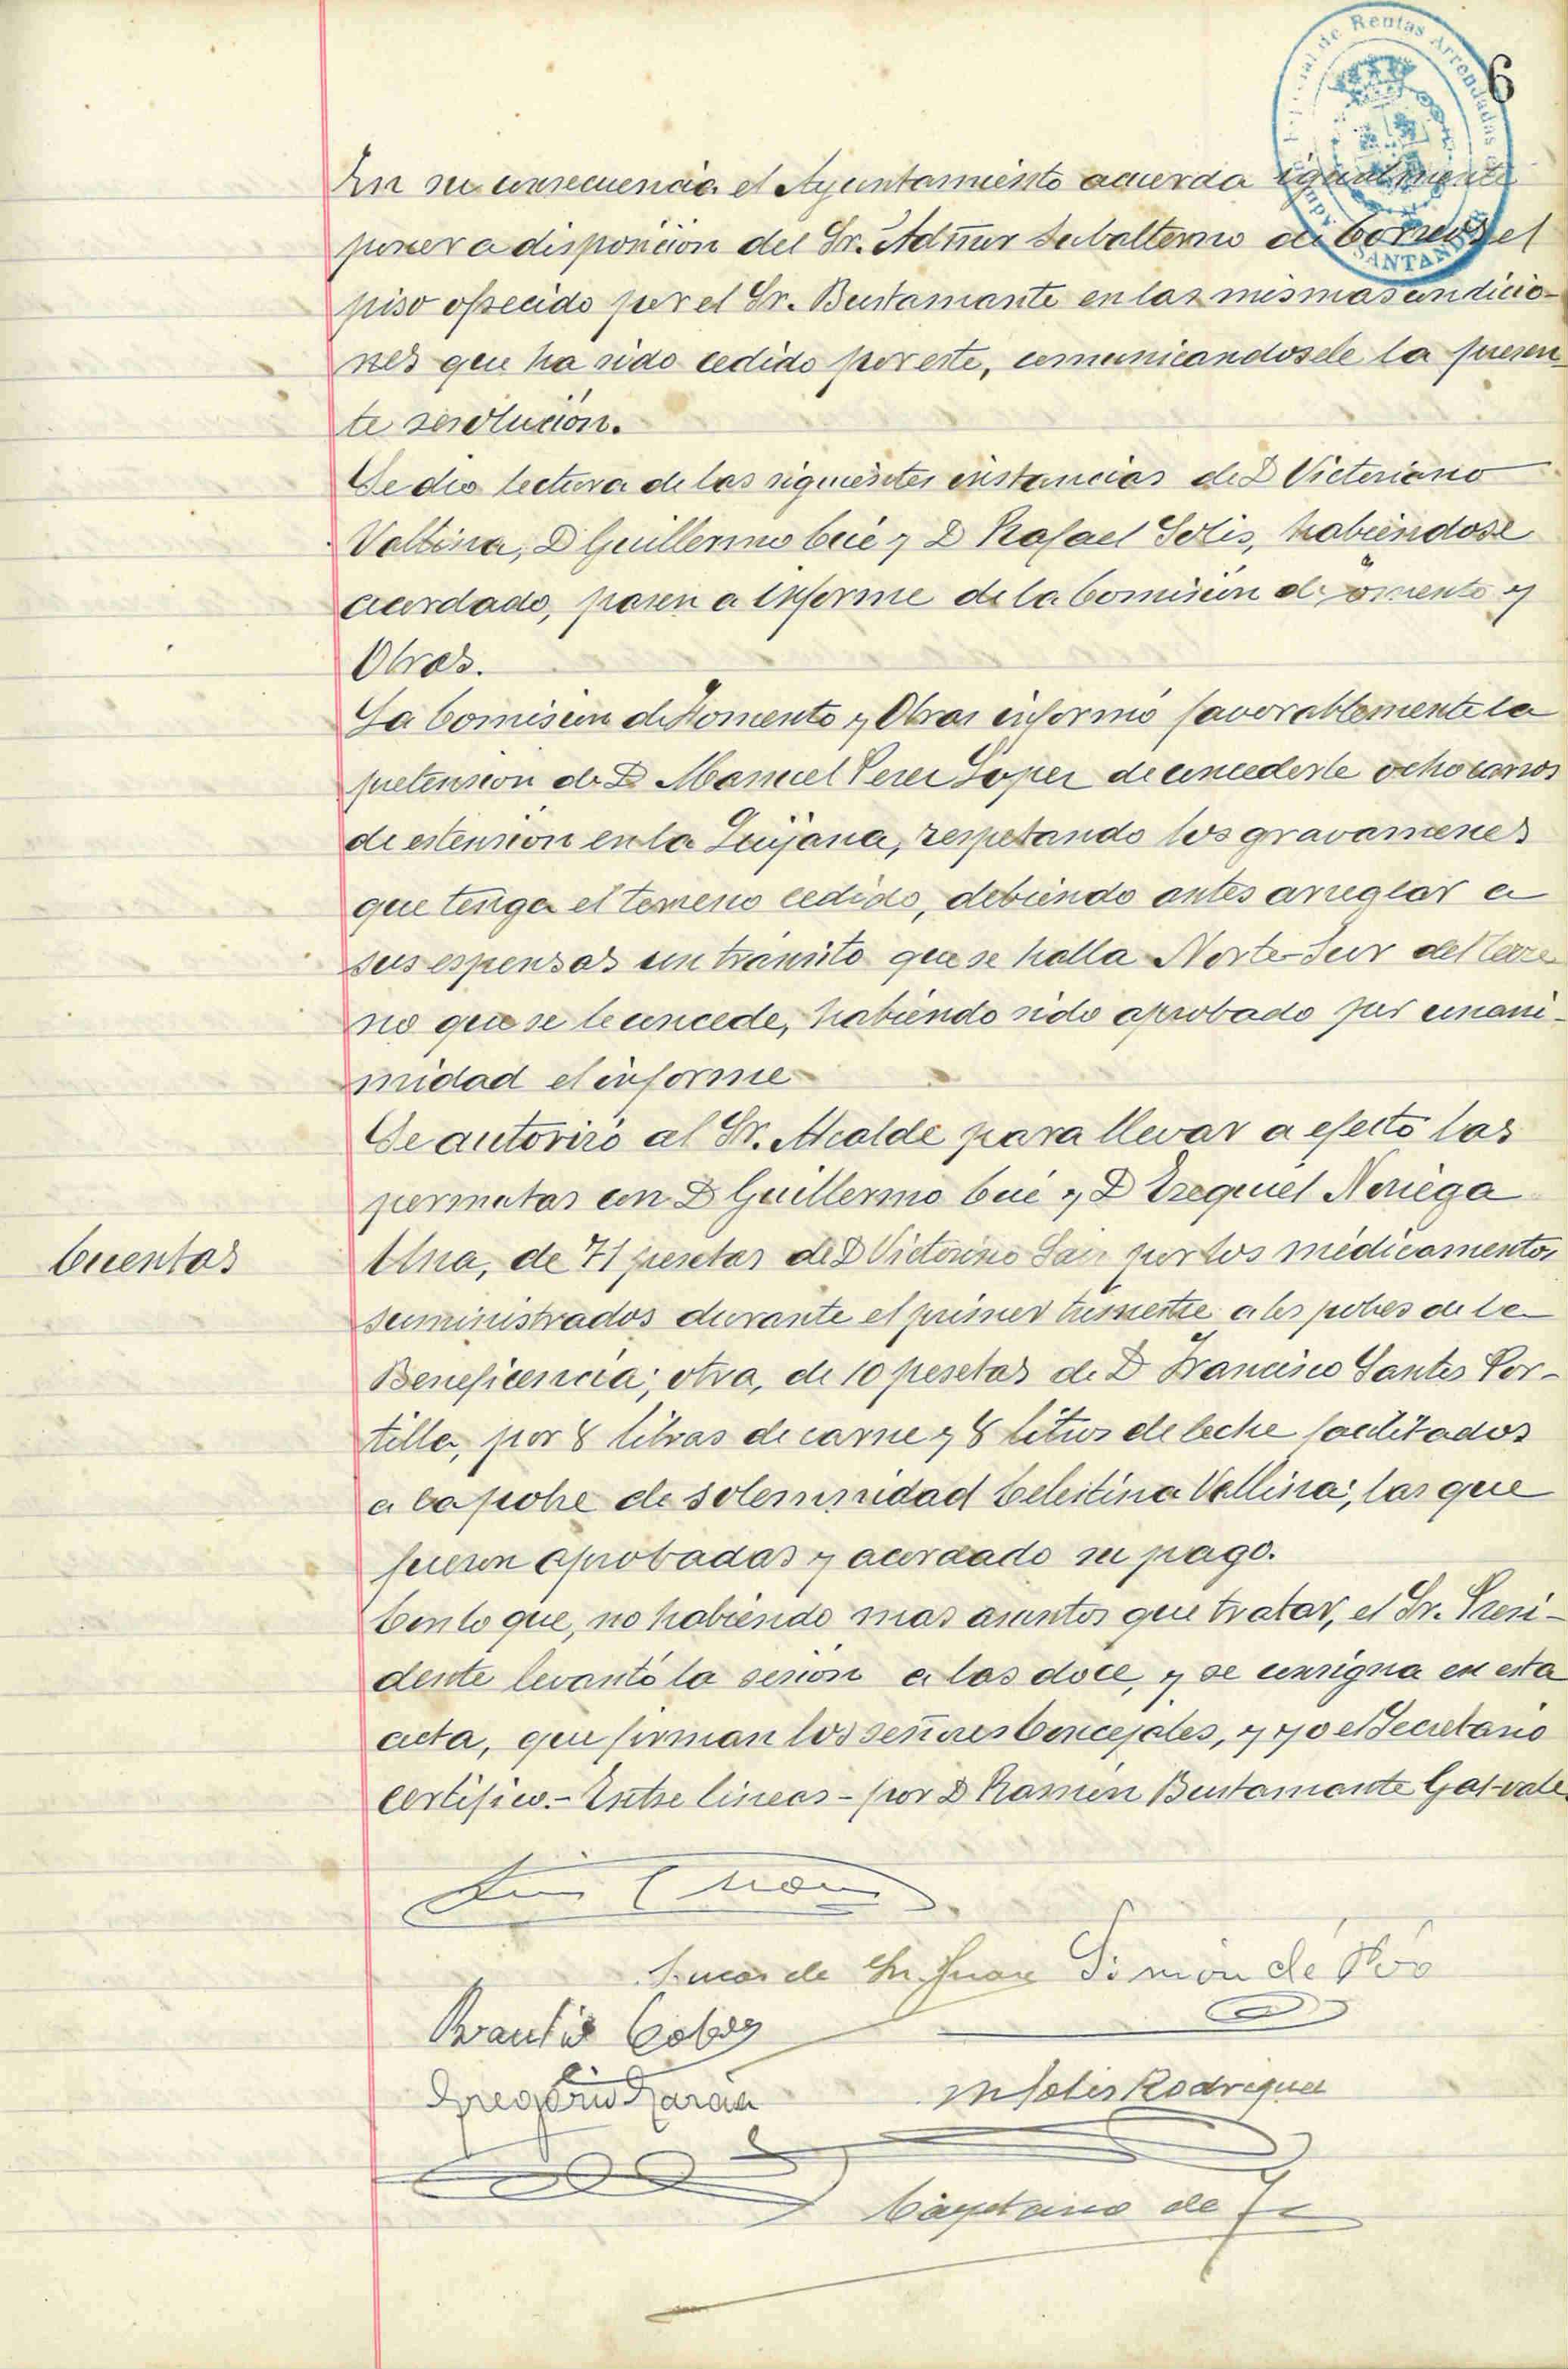 6
Rentas Arrendadas
SANTANDER
En su consecuencia el Ayuntamiento acuerda igualmente
poner a disposicion del Sr. Admor Subalterno de Correos el
piso ofrecido por el Sr. Bustamante en las mismas condicio-
nes que ha sido cedido por este, comunicandosele la presen-
te resolución.
Se dio lectura de las siguientes instancias de D Victoriano
Vallina, D Guillermo Cué y D Rafael Solis, habiendose
acordado, pasen a informe de la Comisión de omento y
Obras.
La Comision de Fomento y Obras informó favorablemente la
pretension de D Manuel Perez Lopez de concederle ocho carros
de estension en la Guijana, respetando los gravamenes
que tenga el terreno cedido, debiendo antes arreglar a
sus espensas un transito que se halla Norte-Sur del terre
no que se le concede, habiendo sido aprobado por unani-
midad el informe
Se autorizó al Sr. Alcalde para llevar a efecto las
permutas con D Guillermo Cué y D Ezequiel Noriega
Cuentas
Una, de 71 pesetas de D Victorino Saiz por los medicamentos
suministrados durante el primer trimestre a los pobres de la
Beneficencia; otra, de 10 pesetas de D Francisco Santos Por-
tilla, por 8 libras de carne y 8 litros de leche facilitados
a la pobre de solemnidad Celestina Vallina; las que
fueron aprobadas y acordado su pago.
Con lo que, no habiendo mas asuntos que tratar, el Sr. Presi-
dente levantó la sesion a las doce, y se consigna en esta
acta, que firman los señores Concejales, y yo el Secretario
certifico.- Entre lineas - por D Ramón Bustamante Gas-vale.
Lucas de Sn. Juan Simón de Póo
Braulio Cobos
Gregorio Garcia
M Solis Rodriguez
Cayetano de